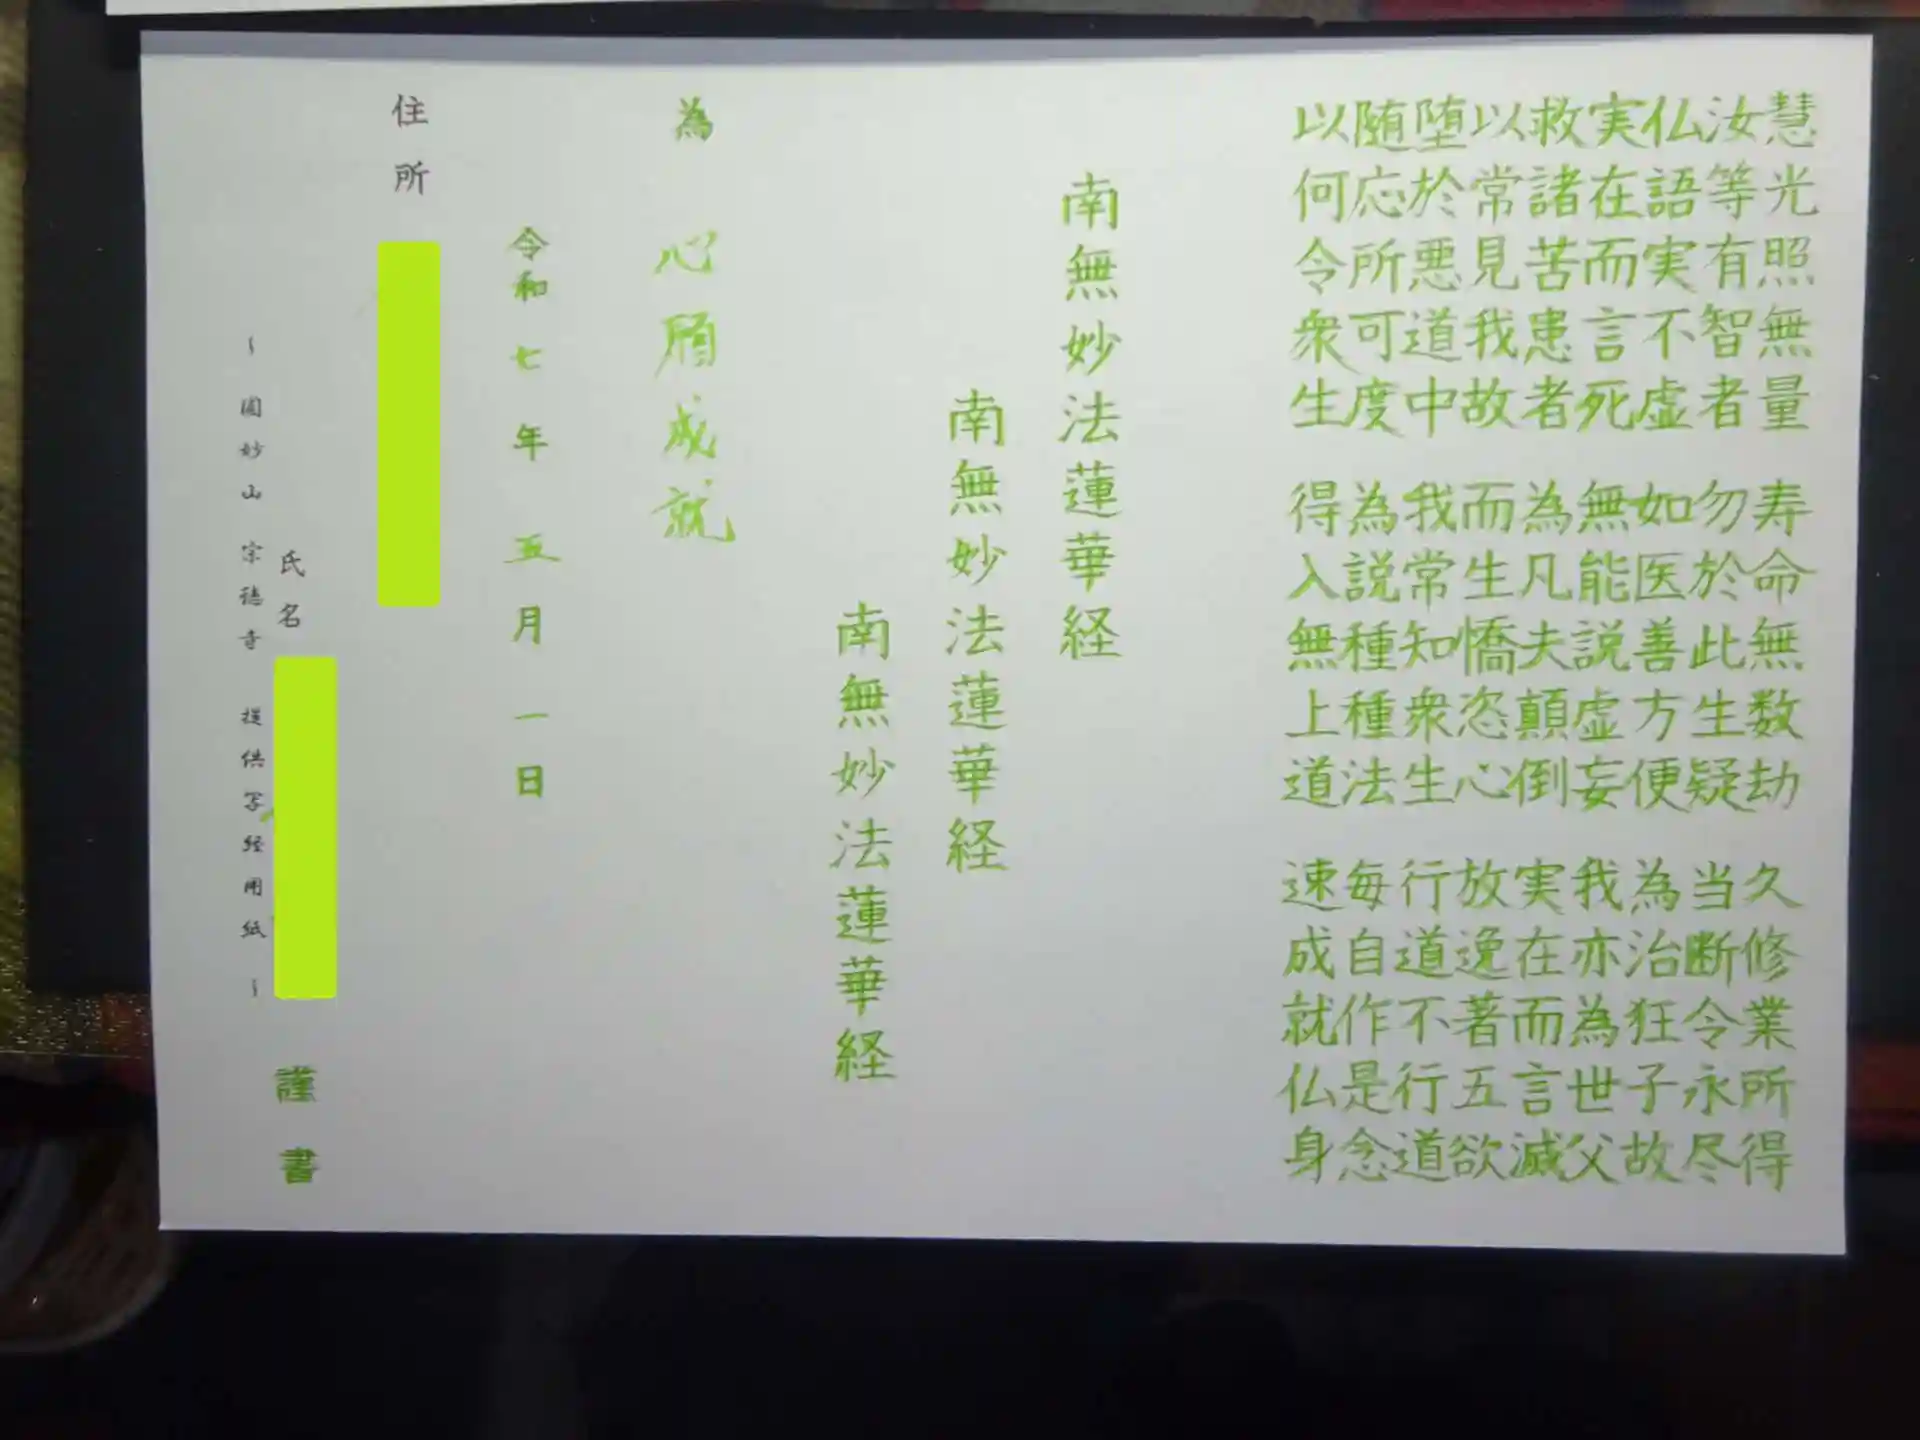 慧光照無量 寿命無数劫 久修業所得
汝等有智者 勿於此生疑 当断令永尽
仏語実不虚 如医善方便 為治狂子故
実在而言死 無能説虚妄 我亦為世父
救諸苦患者 為凡夫顛倒 実在而言滅
以常見我故 而生憍恣心 放逸著五欲
堕於悪道中 我常知衆生 行道不行道
随応所可度 為説種種法 毎自作是念
以何令衆生 得入無上道 速成就仏身
南無妙法蓮華経
南無妙法蓮華経
南無妙法蓮華経
為 心願成就
令和七年五月一日
住所
氏名 謹書
~圓妙山 宗徳寺 提供写経用紙~